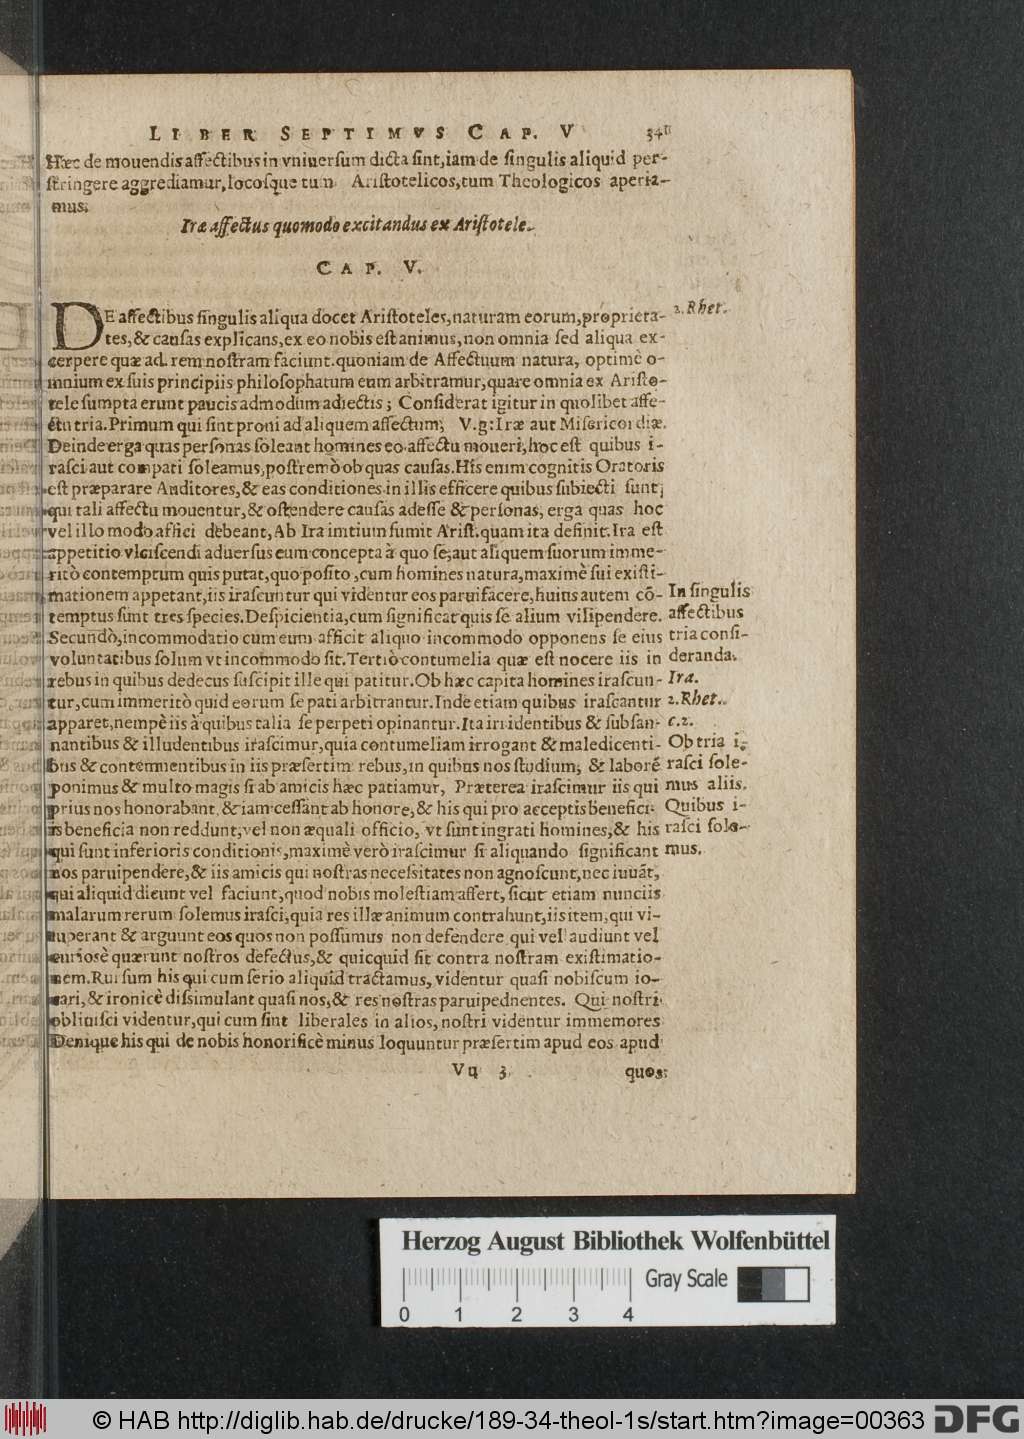 LIBER SEPTIMVS CAP. V 341
Hæc de mouendis affectibus in vniuersum dicta sint, iam de singulis aliquid per-
stringere aggrediamur, locosque tum Aristotelicos, tum Theologicos aperia-
mus.
Iræ affectus quomodo excitandus ex Aristotele.
CAP. V.
DE affectibus singulis aliqua docet Aristoteles, naturam eorum, proprieta-
2. Rhet.
tes, & causas explicans, ex eo nobis est animus, non omnia sed aliqua ex-
cerpere quæ ad rem nostram faciunt. quoniam de Affectuum natura, optimè o-
mnium ex suis principiis philosophatum eum arbitramur, quare omnia ex Aristo-
tele sumpta erunt paucis admodum adiectis; Considerat igitur in quolibet affe-
ctu tria. Primum qui sint proni ad aliquem affectum; V.g: Iræ aut Misericordiæ.
Deinde erga quas personas soleant homines eo affectu moueri, hoc est quibus i-
rasci aut compati soleamus, postremò ob quas causas. His enim cognitis Oratoris
est præparare Auditores, & eas conditiones in illis efficere quibus subiecti sunt,
qui tali affectu mouentur, & ostendere causas adesse & personas, erga quas hoc
vel illo modo affici debeant, Ab Ira initium sumit Arist. quam ita definit. Ira est
appetitio vlciscendi aduersus eum concepta à quo se, aut aliquem suorum imme-
ritò contemptum quis putat, quo posito, cum homines natura, maximè sui existi-
mationem appetant, iis irascuntur qui videntur eos paruifacere, huius autem cō-
temptus sunt tres species. Despicientia, cum significat quis se alium vilipendere.
Secundò, incommodatio cum eum afficit aliquo incommodo opponens se eius
voluntatibus solum vt incommodo sit. Tertiò contumelia quæ est nocere iis in
rebus in quibus dedecus suscipit ille qui patitur. Ob hæc capita homines irascun-
tur, cum immeritò quid eorum se pati arbitrantur. Inde etiam quibus irascantur
apparet, nempè iis à quibus talia se perpeti opinantur. Ita irridentibus & subsan-
nantibus & illudentibus irascimur, quia contumeliam irrogant & maledicenti-
bus & contemnentibus in iis præsertim rebus, in quibus nos studium, & laborē
ponimus & multo magis si ab amicis hæc patiamur, Præterea irascimur iis qui
prius nos honorabant, & iam cessant ab honore, & his qui pro acceptis benefici-
is beneficia non reddunt, vel non æquali officio, vt sunt ingrati homines, & his
qui sunt inferioris conditionis, maximè verò irascimur si aliquando significant
nos paruipendere, & iis amicis qui nostras necessitates non agnoscunt, nec iuuāt,
qui aliquid dicunt vel faciunt, quod nobis molestiam affert, sicut etiam nunciis
malarum rerum solemus irasci, quia res illæ animum contrahunt, iis item, qui vi-
tuperant & arguunt eos quos non possumus non defendere qui vel audiunt vel
curiosè quærunt nostros defectus, & quicquid sit contra nostram existimatio-
nem. Rursum his qui cum serio aliquid tractamus, videntur quasi nobiscum io-
cari, & ironicè dissimulant quasi nos, & res nostras paruipednentes. Qui nostri
obliuisci videntur, qui cum sint liberales in alios, nostri videntur immemores
Denique his qui de nobis honorificè minus loquuntur præsertim apud eos apud
In singulis
affectibus
tria consi-
deranda.
Ira.
2. Rhet.
c.2.
Ob tria i-
rasci sole-
mus aliis.
Quibus i-
rasci sole-
mus.
Vu 3 quos:
Herzog August Bibliothek Wolfenbüttel
Gray Scale
0 1 2 3 4
© HAB http://diglib.hab.de/drucke/189-34-theol-1s/start.htm?image=00363 DFG